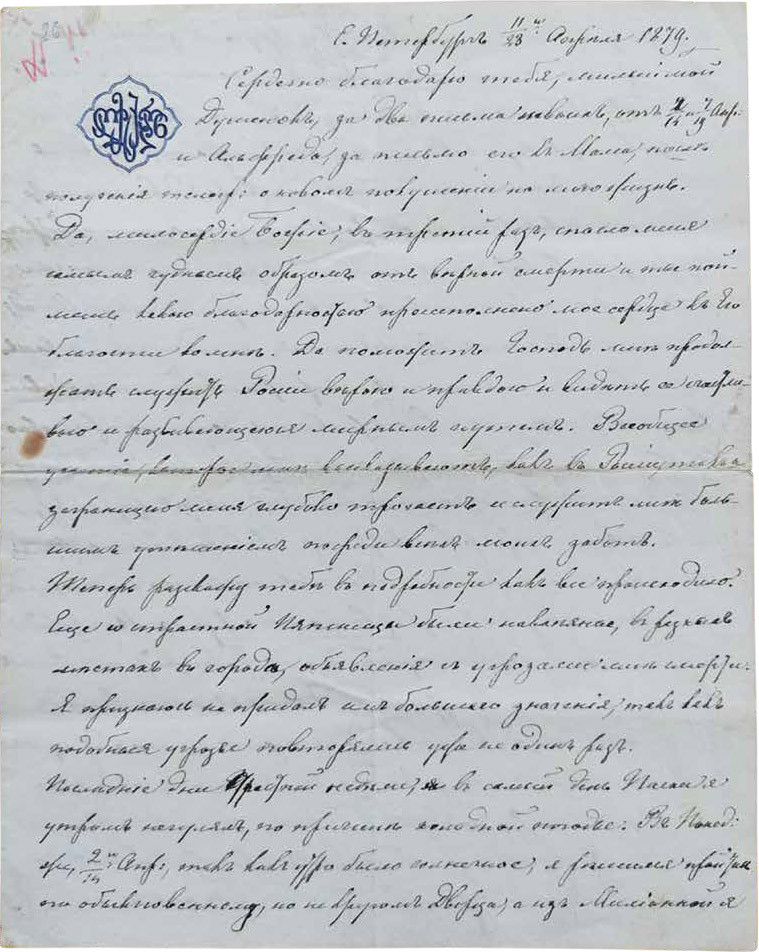 26
С. Петербургъ 11/23го Апрѣля 1879.
Сердечно благодарю тебя, милый мой
Душенокъ, за два письма твоихъ, отъ 2/14 и 7/19 Апр:
и Альфреда, за письмо его къ Мама, послѣ
полученія телегр: о новомъ покушеніи на мою жизнь.
Да, милосердіе Божіе, въ третій разъ, спасло меня
самымъ чуднымъ образомъ отъ вѣрной смерти и ты пой-
мешь какою благодарностью преисполнено мое сердце къ Его
благости ко мнѣ. Да поможетъ Господь мнѣ продол-
жать служить Россіи вѣрою и правдою и видѣть ее счастли-
вою и развивающеюся мирнымъ путемъ. Всеобщее
участіе, которое мнѣ выказываютъ, какъ въ Россіи, такъ и
заграницею меня глубоко трогаетъ и служитъ мнѣ боль-
шимъ утѣшеніемъ посреди всѣхъ моихъ заботъ.
Теперь разскажу тебѣ въ подробности какъ все происходило.
Еще в страстной Пятницы были найденные, въ разныхъ
мѣстахъ въ городѣ, объявленія съ угрозами мнѣ смерти.
Я признаюсь не придалъ имъ большаго значенія, такъ какъ
подобныя угрозы повторялись уже не одинъ разъ.
Послѣдніе дни Страстной недѣли, и въ самый день Пасхи я
утромъ не гулялъ, по причинѣ холодной погоды. Въ Понед:
же, 2/14го Апр:, такъ какъ утро было солнечное, я рѣшился пройтись
по обыкновенному, но не кругомъ Дворца, а изъ Милліонной я